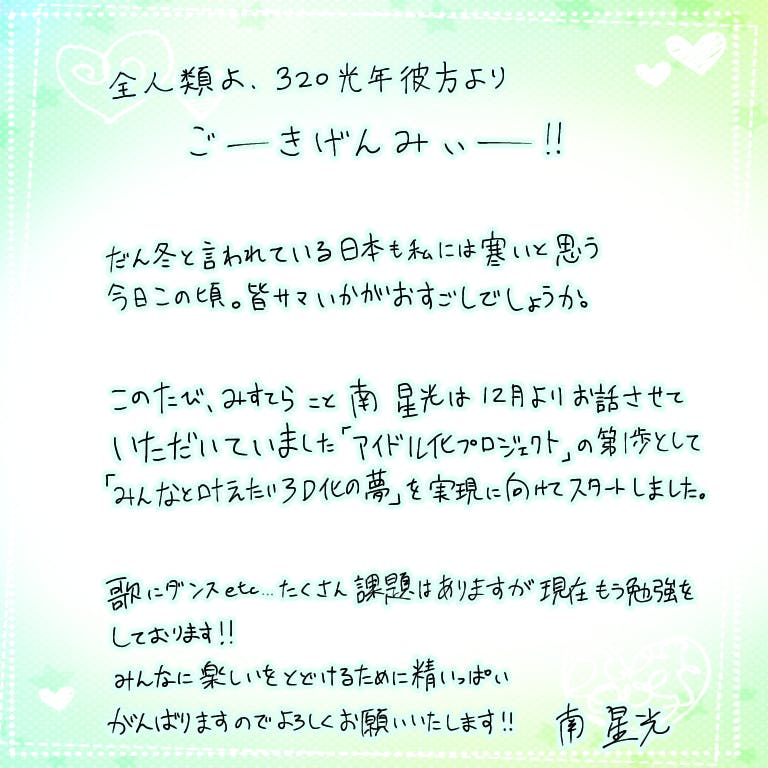 全人類よ、320光年彼方より
ごーきげんみぃー!!
だん冬と言われている日本も私には寒いと思う
今日この頃。皆サマいかがおすごしでしょうか。
このたび、みすてらこと 南 星光は12月よりお話させて
いただいていました「アイドル化プロジェクト」の第1歩として
「みんなと叶えたい3D化の夢」を実現に向けてスタートしました。
歌にダンスetc...たくさん課題はありますが現在もう勉強を
しております!!
みんなに楽しいをとどけるために精いっぱい
がんばりますのでよろしくお願いいたします!!
南 星光